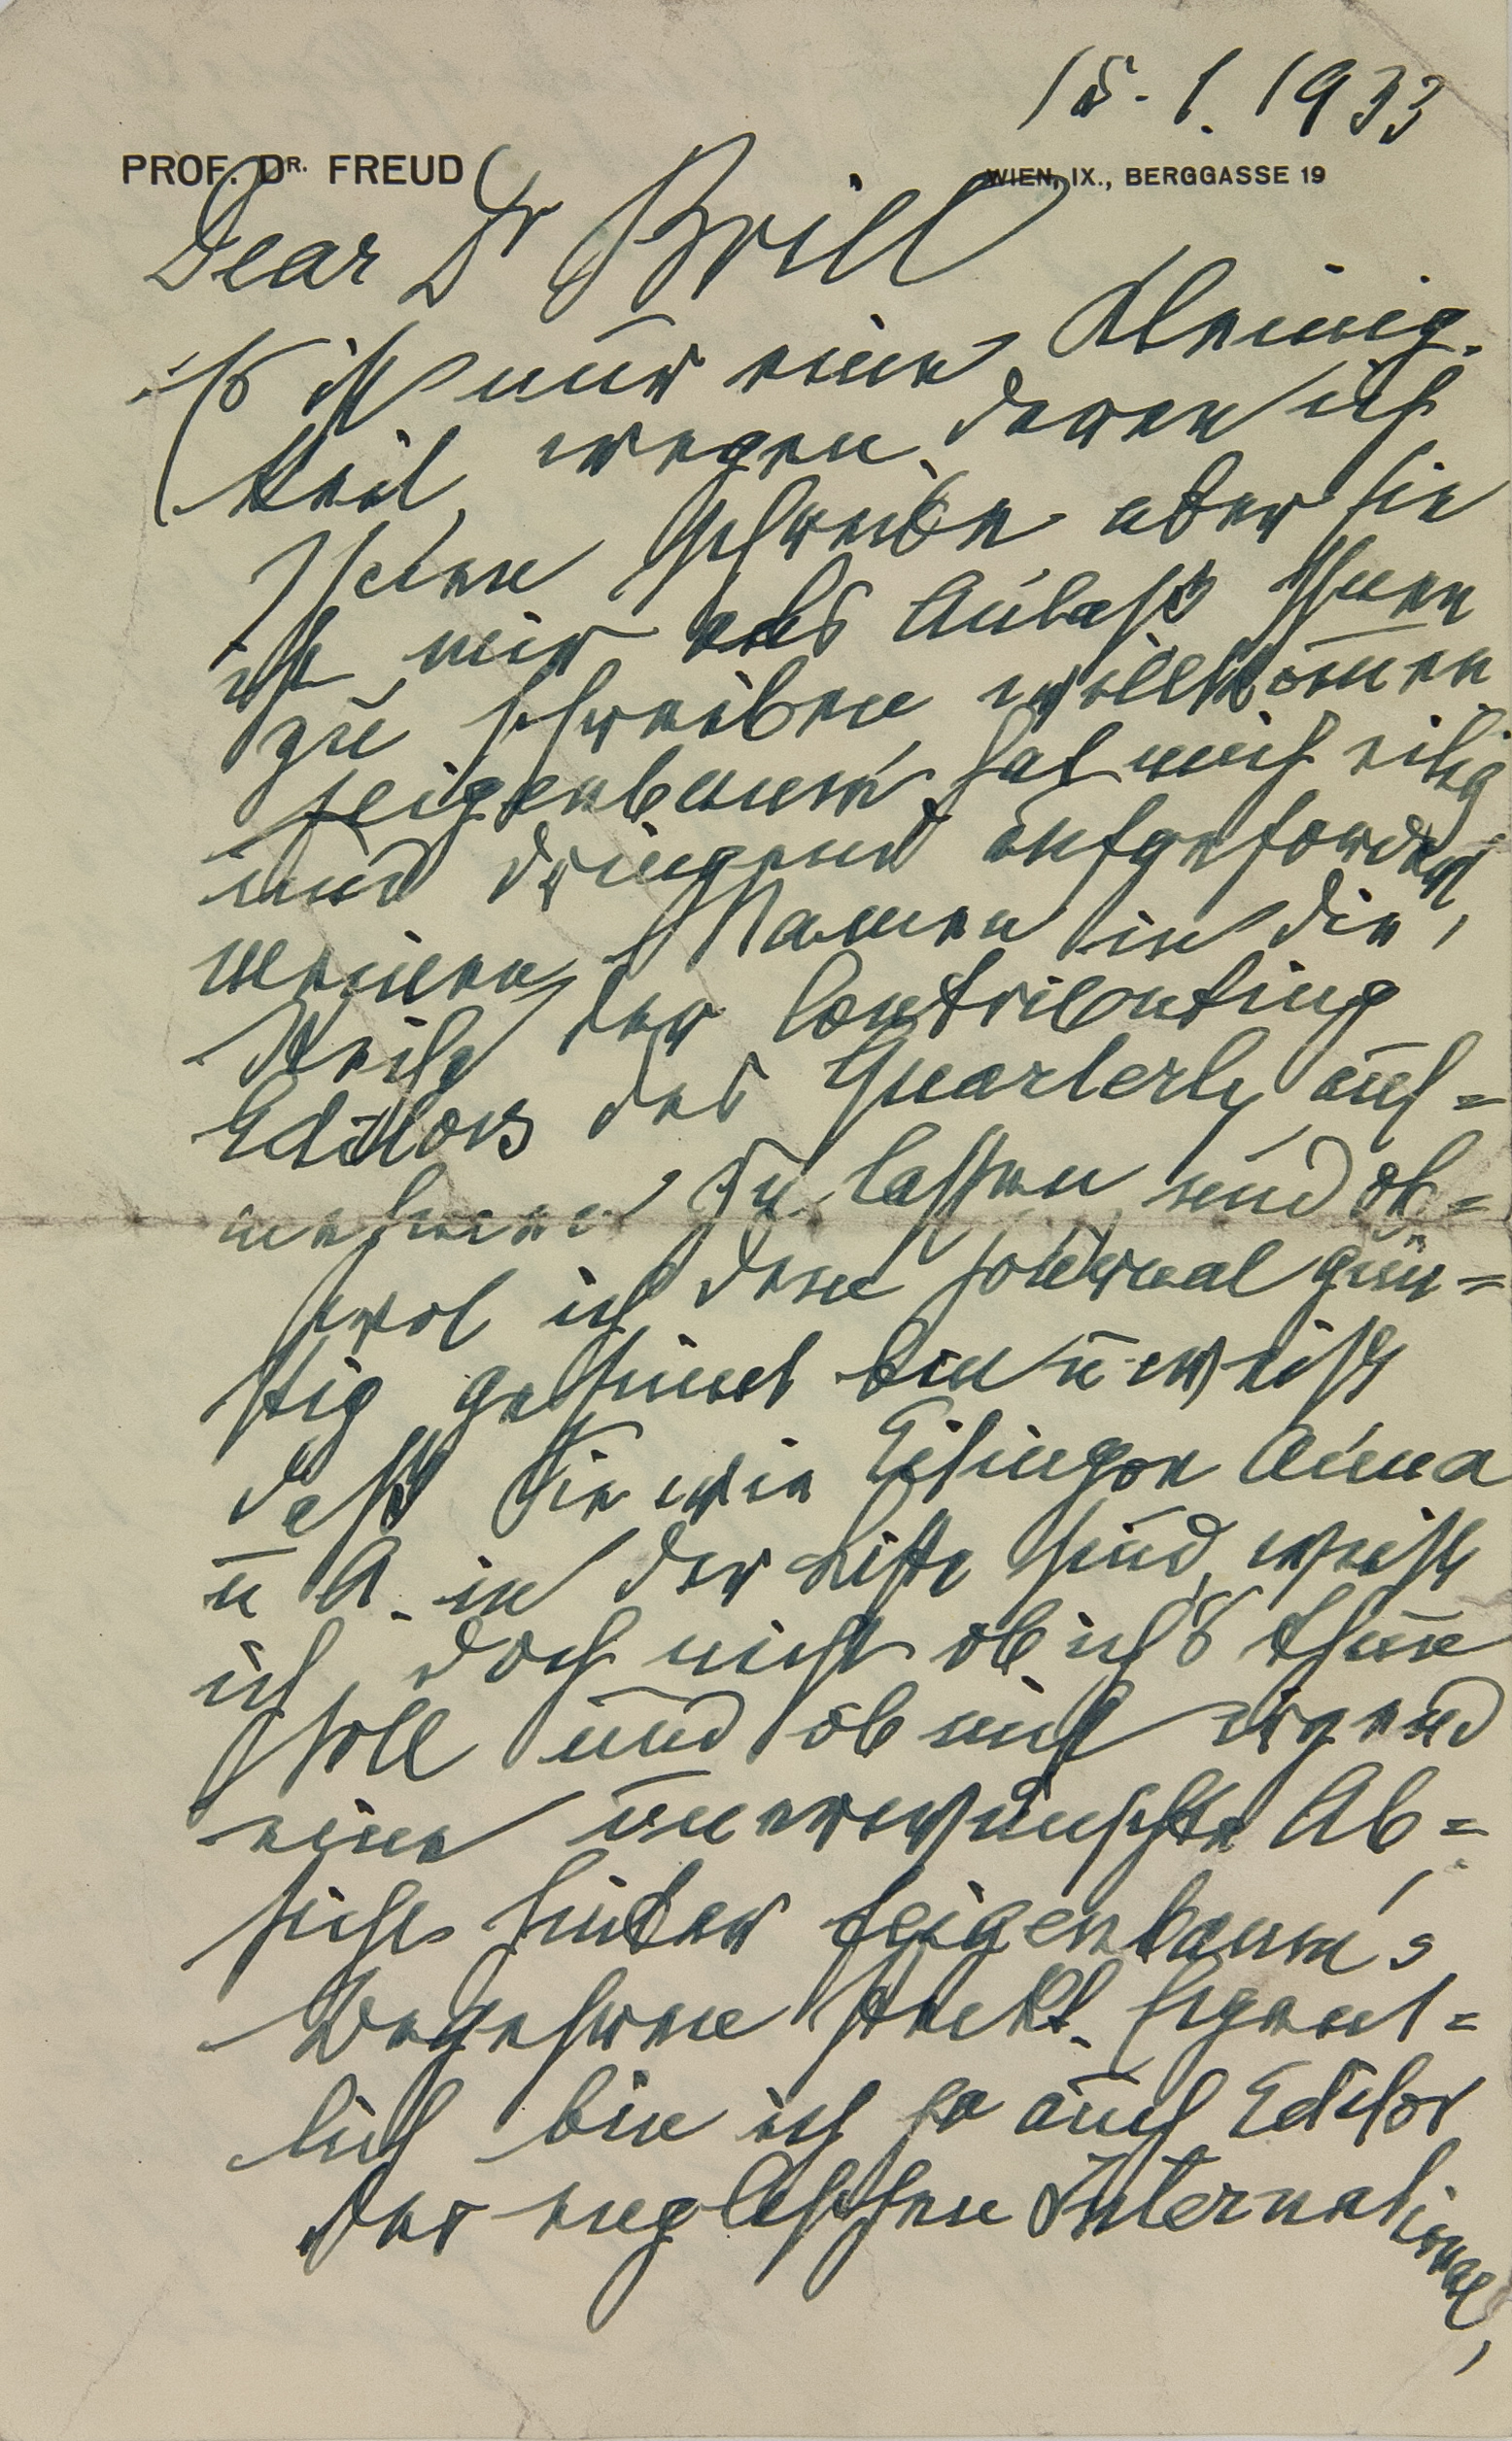 15. 1. 1933
PROF. DR. FREUD WIEN, IX., BERGGASSE 19
Dear Dr Brill
Es ist nur eine Kleinig-
keit, wegen deren ich
Ihnen schreibe aber sie
ist mir als Anlaß Ihnen
zu schreiben willkommen
Feigenbaum hat mich eilig
und dringend aufgefordert,
meinen Namen in die
Reihe der Contributing
Editors des Quarterly auf=
nehmen zu lassen und ob=
wol ich dem Journal gün=
stig gesinnt bin u weiß
daß Sie wie Eitingon Anna
u A. in der Liste sind, weiß
ich doch nicht ob ich's thun
soll und ob nicht irgend
eine unerwünschte Ab=
sicht hinter Feigenbaum's
Begehren steckt. Eigent=
lich bin ich ja auch Editor
des englischen International,